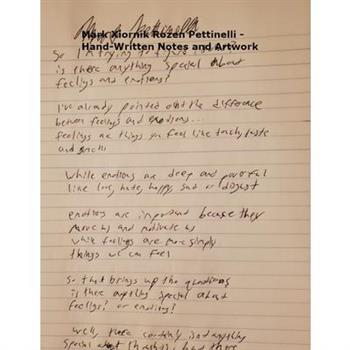 Mark Xiornik Rozen Pettinelli -
Hand-Written Notes and Artwork
So I'm trying to figure
is there anything special about
feelings and emotions?
I've already pointed out the difference
between feelings and emotions...
feelings are things you feel like touch, taste
and smell
While emotions are deep and powerful
like love, hate, happy, sad or disgust
emotions are important because they
move us and motivate us
while feelings are more simply
things we can feel
So that brings up the question
is there anything special about
feelings? or emotions?
Well, there certainly isn't anything
special about